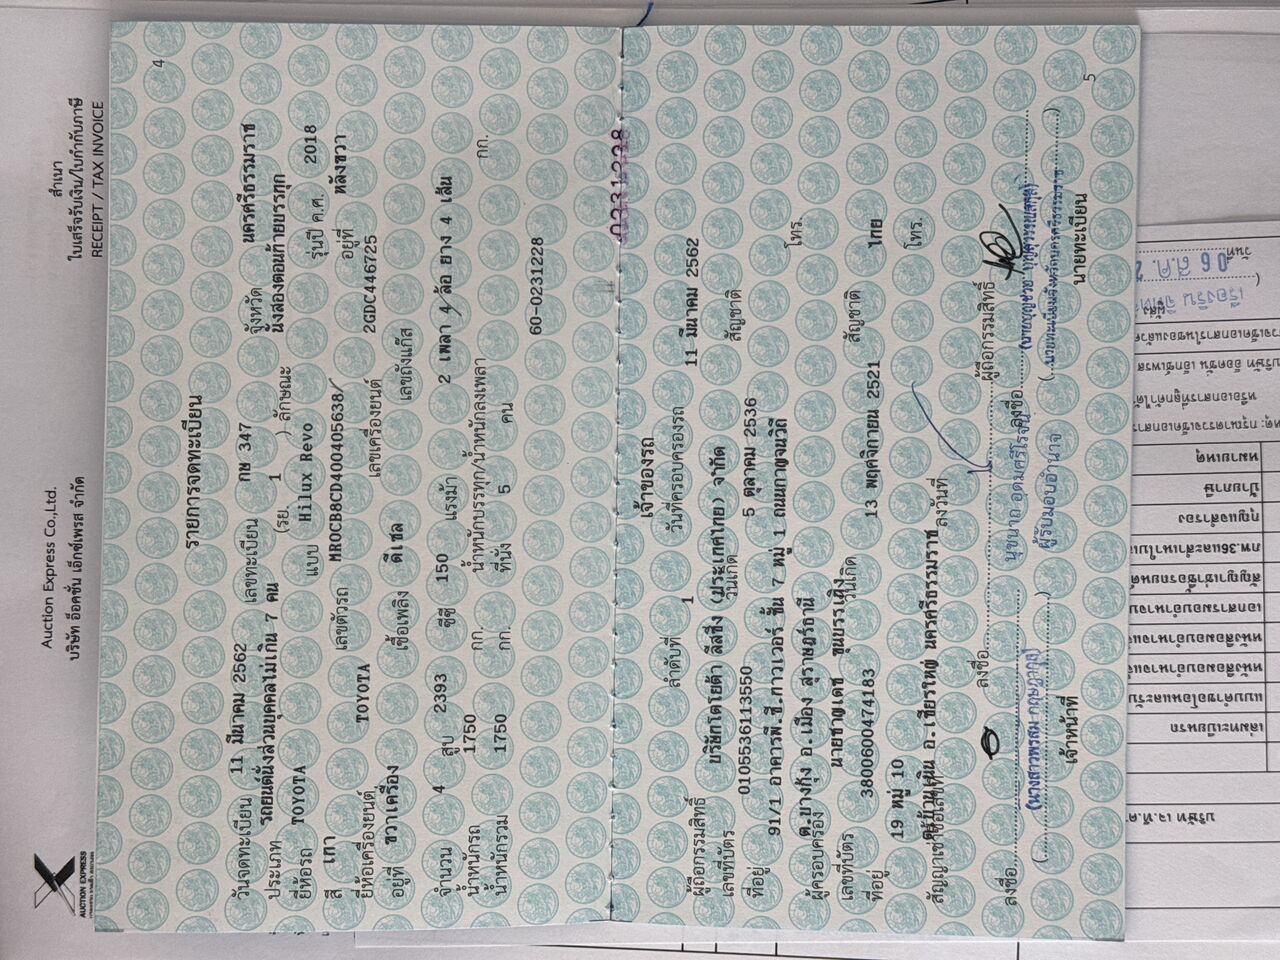 4
รายการจดทะเบียน
วันจดทะเบียน 11 มีนาคม 2562 เลขทะเบียน กษ 347 จังหวัด นครศรีธรรมราช
ประเภท รถยนต์นั่งส่วนบุคคลไม่เกิน 7 คน (รย. 1 ) ลักษณะ นั่งสองตอนท้ายบรรทุก
ยี่ห้อรถ TOYOTA แบบ Hilux Revo รุ่นปี ค.ศ. 2018
สี เทา เลขตัวรถ MR0CB8CD400405638 อยู่ที่ หลังขวา
ยี่ห้อเครื่องยนต์ TOYOTA เลขเครื่องยนต์ 2GDC446725
อยู่ที่ ขวาเครื่อง เชื้อเพลิง ดีเซล เลขถังแก๊ส
จำนวน 4 สูบ 2393 ซีซี 150 แรงม้า 2 เพลา 4 ล้อ ยาง 4 เส้น
น้ำหนักรถ 1750 กก. น้ำหนักบรรทุก/น้ำหนักลงเพลา กก.
น้ำหนักรวม 1750 กก. ที่นั่ง 5 คน
60-0231228
0231228
เจ้าของรถ
ลำดับที่ 1 วันที่ครอบครองรถ 11 มีนาคม 2562
ผู้ถือกรรมสิทธิ์ บริษัทโตโยต้า ลีสซิ่ง (ประเทศไทย) จำกัด
เลขที่บัตร 0105536113550 วันเกิด 5 ตุลาคม 2536 สัญชาติ
ที่อยู่ 91/1 อาคารพี.ซี.ทาวเวอร์ ชั้น 7 หมู่ 1 ถนนกาญจนวิถี
ต.บางกุ้ง อ.เมือง สุราษฎร์ธานี โทร.
ผู้ครอบครอง นายชาญเดช ขุนบรรเทิง
เลขที่บัตร 3800600474183 วันเกิด 13 พฤศจิกายน 2521 สัญชาติ ไทย
ที่อยู่ 19 หมู่ 10
ต.บ้านเนิน อ.เชียรใหญ่ นครศรีธรรมราช โทร.
สัญญาเช่าซื้อเลขที่ ลงวันที่
ลงชื่อ ผู้ถือกรรมสิทธิ์
นุชนาถ อุดมศรีโรจน์
ผู้รับมอบอำนาจ
ลงชื่อ ลงชื่อ
เจ้าหน้าที่ นายทะเบียน
5
Auction Express Co.,Ltd.
บริษัท อ๊อคชั่น เอ็กซ์เพรส จำกัด
AUCTION EXPRESS
สำเนา
ใบเสร็จรับเงิน/ใบกำกับภาษี
RECEIPT / TAX INVOICE
วันที่
06 ส.ค. 2
หมายเหตุ
ป้ายภาษี
กุญแจสำรอง
เล่มทะเบียนรถ